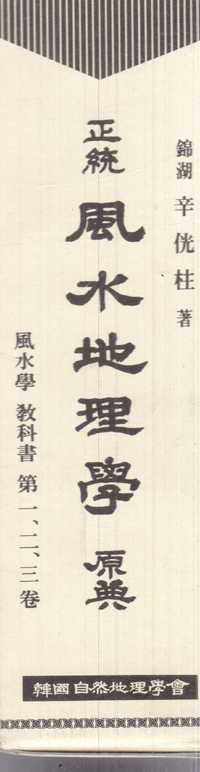 錦湖 辛侊柱 著
正統 風水地理學 原典
風水學 敎科書 第 一、二、三卷
韓國自然地理學會